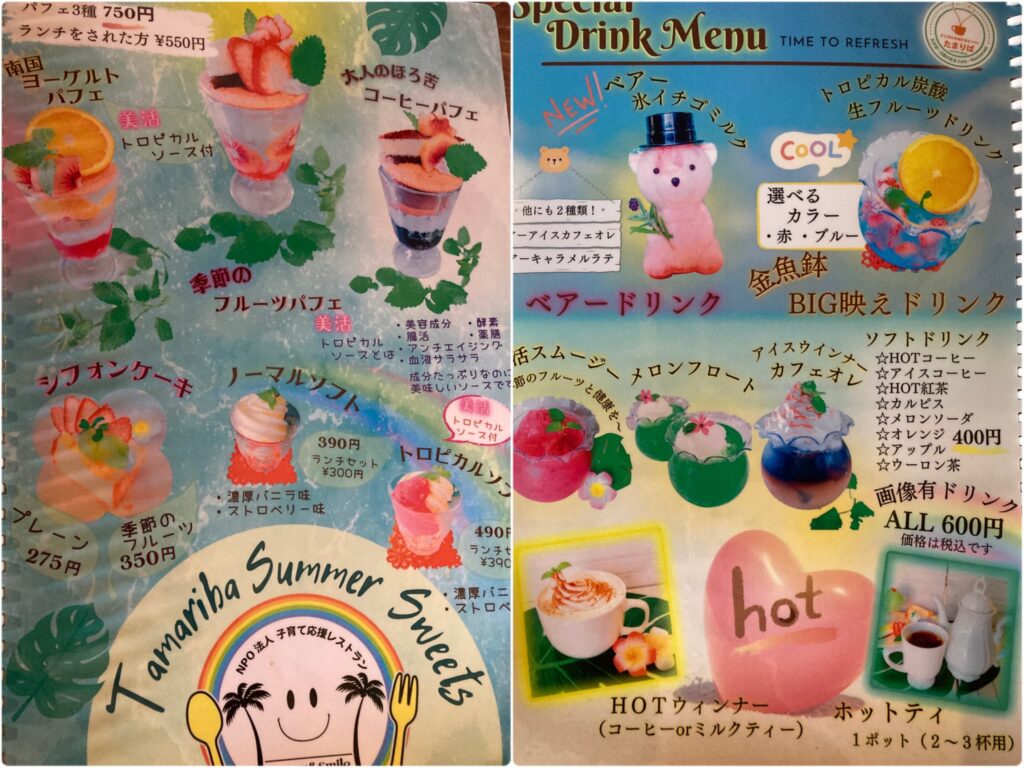 パフェ3種 750円
ランチをされた方 ¥550円
南国
ヨーグルト
パフェ
美活
トロピカル
ソース付
大人のほろ苦
コーヒーパフェ
季節の
フルーツパフェ
美活
トロピカル
ソースとは
・美容成分 ・酵素
・腸活 ・薬膳
・アンチエイジング
・血液サラサラ
成分たっぷりなのに
美味しいソースです
シフォンケーキ
プレーン
275円
季節の
フルーツ
350円
ノーマルソフト
390円
ランチセット
¥300円
・濃厚バニラ味
・ストロベリー味
美活
トロピカル
ソース付
トロピカルソフ
490円
ランチセ
¥390
・濃厚バニ
・ストロベ
Tamariba Summer Sweets
NPO法人 子育て応援レストラン
Special
Drink Menu
TIME TO REFRESH
たまりば
NEW!!
ベアー
氷イチゴミルク
・他にも2種類!・
アーアイスカフェオレ
アーキャラメルラテ
ベアードリンク
トロピカル炭酸
生フルーツドリンク
COOL
選べる
カラー
・赤 ・ブルー
金魚鉢
BIG映えドリンク
活スムージー
節のフルーツと健康を〜
メロンフロート
アイスウインナー
カフェオレ
ソフトドリンク
☆HOTコーヒー
☆アイスコーヒー
☆HOT紅茶
☆カルピス
☆メロンソーダ
☆オレンジ 400円
☆アップル
☆ウーロン茶
画像有ドリンク
ALL 600円
価格は税込です
hot
HOTウィンナー
(コーヒーorミルクティー)
ホットティ
1ポット(2〜3杯用)